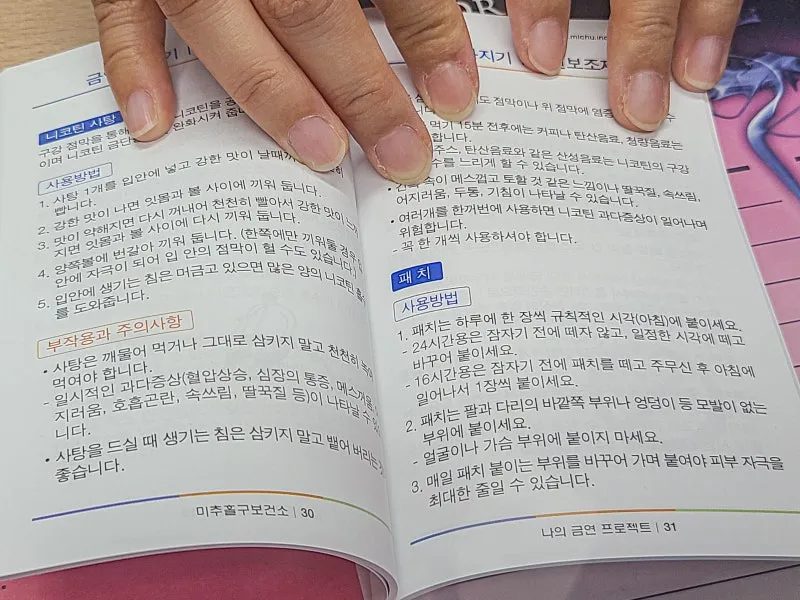 OR
금
기
니코틴 사탕 니코틴을
구강 점막을 통해 완화시켜 줍니
이며 니코틴 금단
사용방법
1. 사탕 1개를 입안에 넣고 강한 맛이 날때까
빱니다.
2. 강한 맛이 나면 잇몸과 볼 사이에 끼워 둡니다.
3. 맛이 약해지면 다시 꺼내어 천천히 빨아서 강한 맛이
지면 잇몸과 볼 사이에 다시 끼워 둡니다.
4. 양쪽볼에 번갈아 끼워 둡니다. (한쪽에만 끼워둘 경우
안에 자극이 되어 입 안의 점막이 헐 수도 있습니다)
5. 입안에 생기는 침은 머금고 있으면 많은 양의 니코틴
를 도와줍니다.
부작용과 주의사항
• 사탕은 깨물어 먹거나 그대로 삼키지 말고 천천히
먹여야 합니다.
- 일시적인 과다증상(혈압상승, 심장의 통증, 메스꺼움,
지러움, 호흡곤란, 속쓰림, 딸꾹질 등)이 나타날 수
니다.
• 사탕을 드실 때 생기는 침은 삼키지 말고 뱉어 버리는
좋습니다.
미추홀구보건소 | 30
www.michu.inc
지기
보조제
도 점막이나 위 점막에 염증
니다
먹기 15분 전후에는 커피나 탄산음료, 청량음료는
합니다.
주스, 탄산음료와 같은 산성음료는 니코틴의 구강
수를 느리게 할 수 있습니다.
속이 메스껍고 토할 것 같은 느낌이나 딸꾹질, 속쓰림,
어지러움, 두통, 기침이 나타날 수 있습니다.
• 여러개를 한꺼번에 사용하면 니코틴 과다증상이 일어나며
위험합니다.
- 꼭 한 개씩 사용하셔야 합니다.
패 치
사용방법
1. 패치는 하루에 한 장씩 규칙적인 시각(아침)에 붙이세요.
- 24시간용은 잠자기 전에 떼지 않고, 일정한 시각에 떼고
바꾸어 붙이세요.
- 16시간용은 잠자기 전에 패치를 떼고 주무신 후 아침에
일어나서 1장씩 붙이세요.
2. 패치는 팔과 다리의 바깥쪽 부위나 엉덩이 등 모발이 없는
부위에 붙이세요.
- 얼굴이나 가슴 부위에 붙이지 마세요.
3. 매일 패치 붙이는 부위를 바꾸어 가며 붙여야 피부 자극을
최대한 줄일 수 있습니다.
나의 금연 프로젝트 | 31